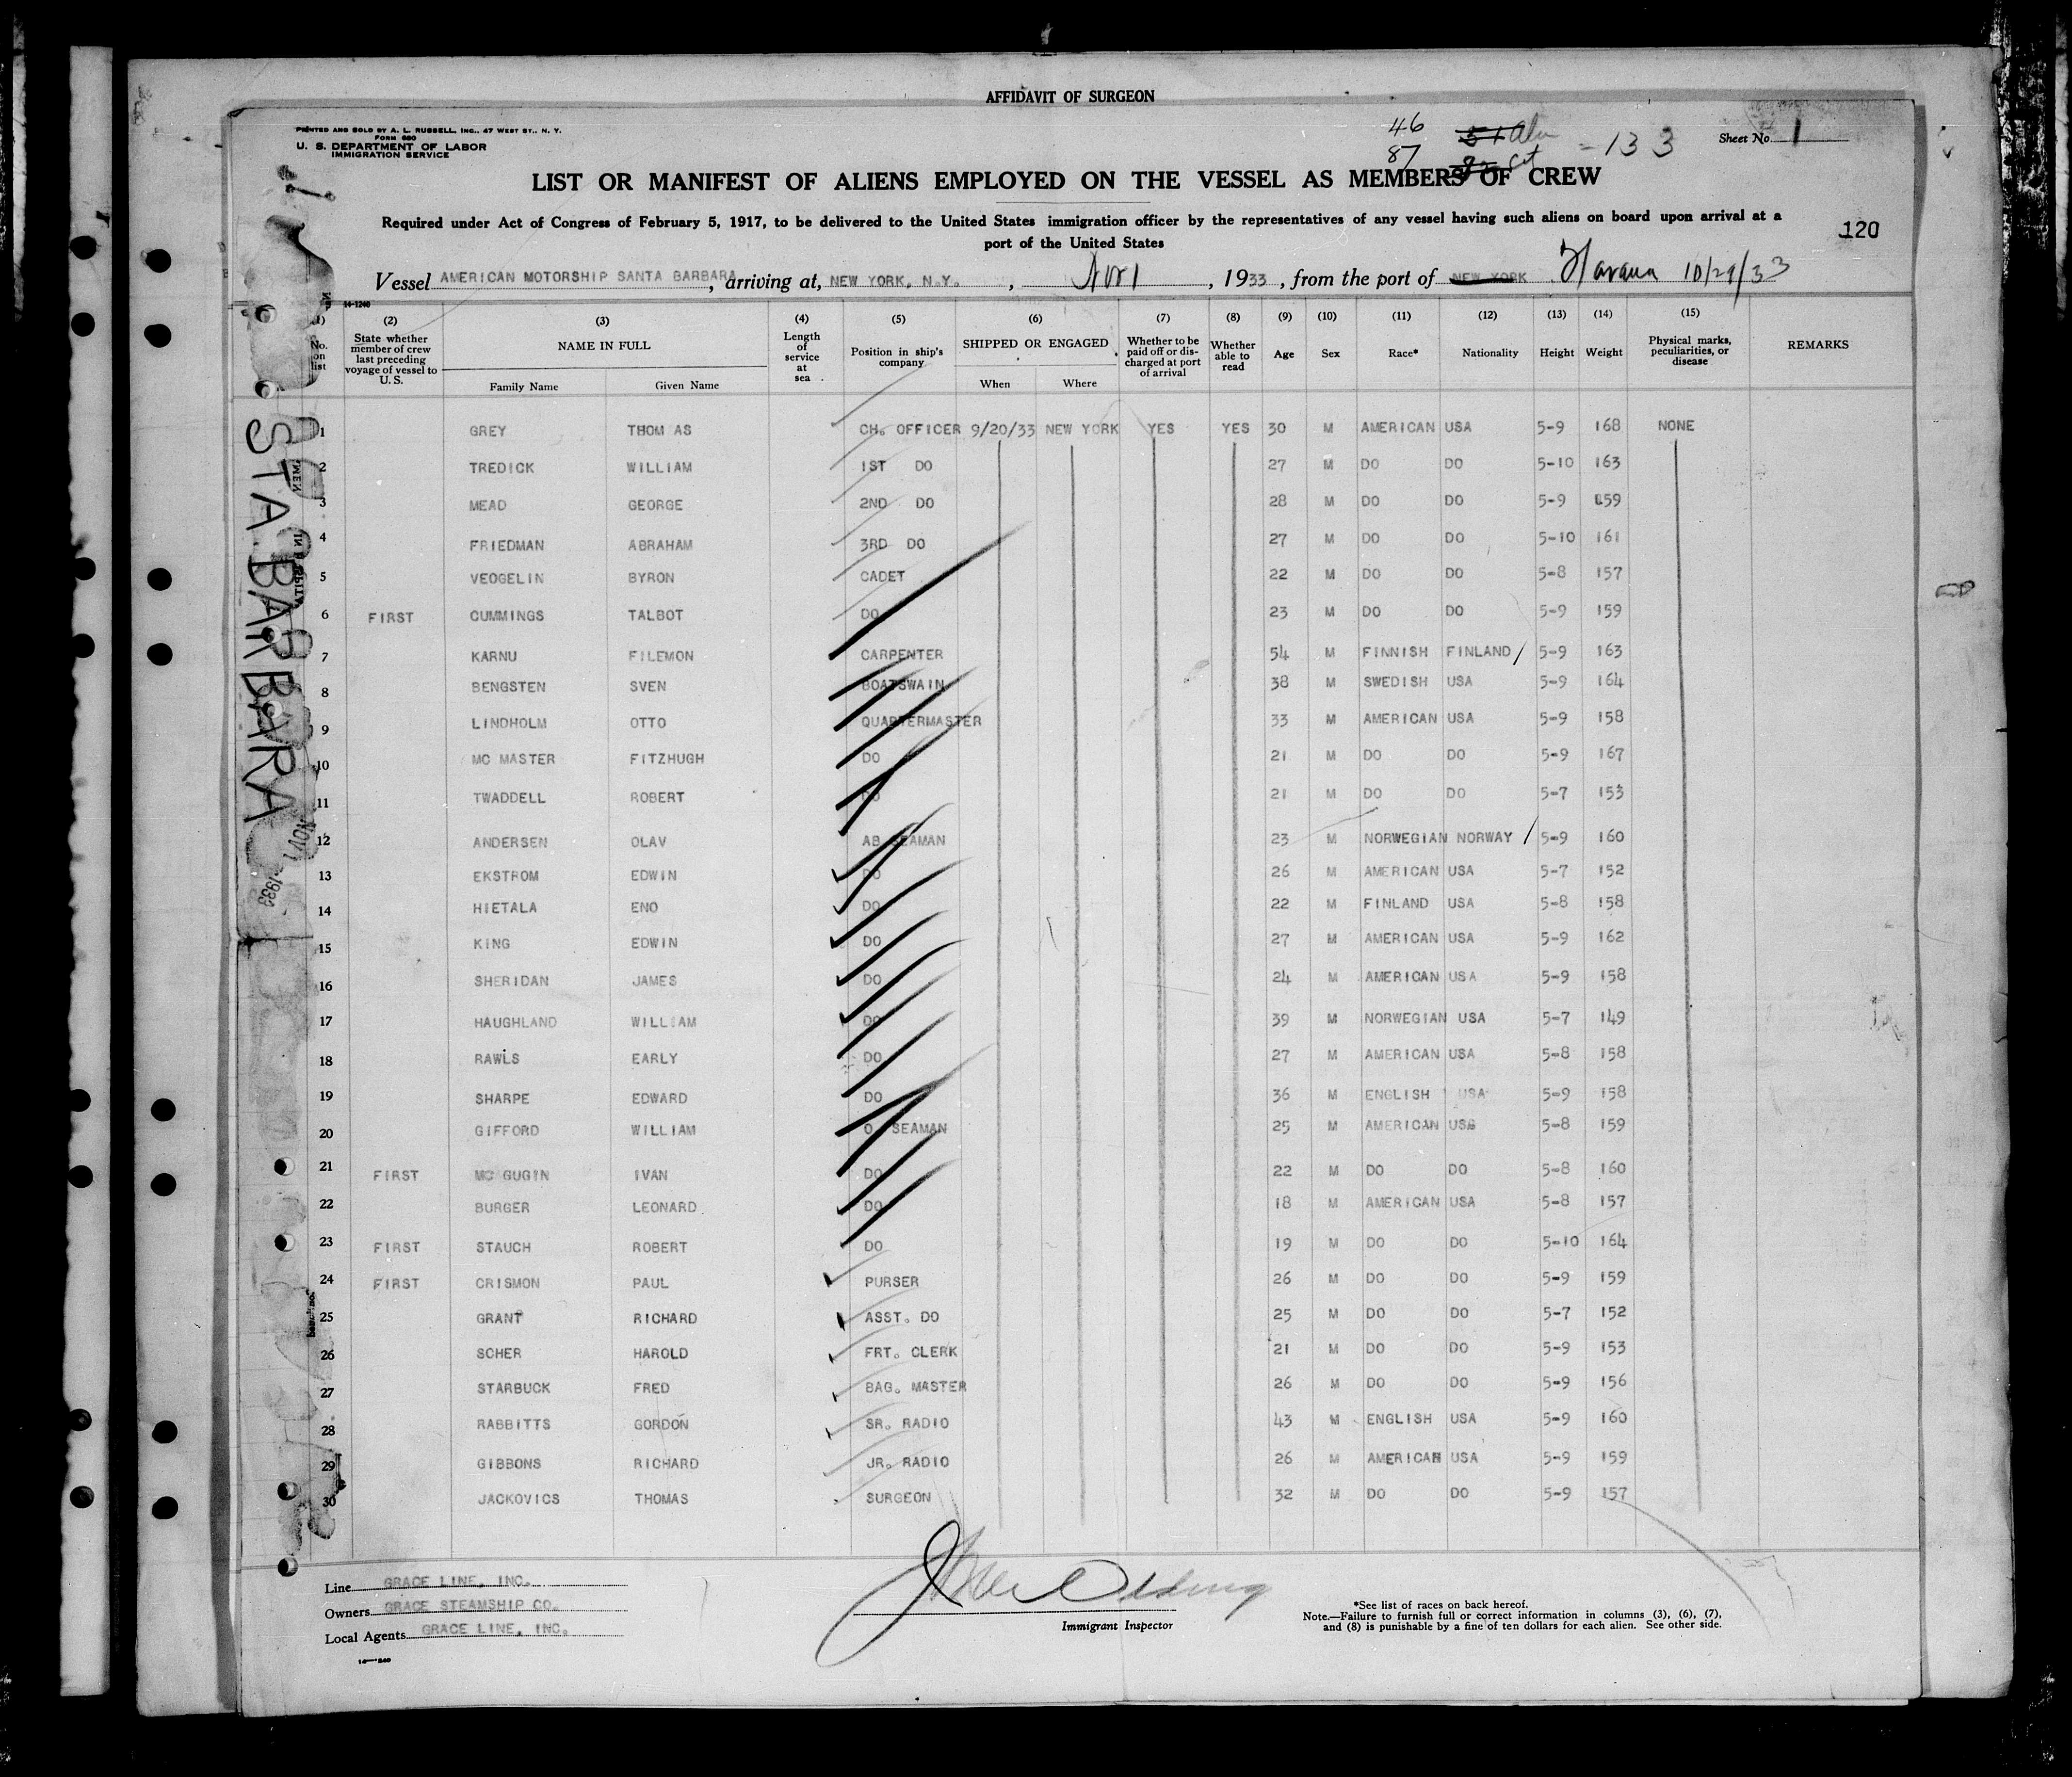 AFFIDAVIT OF SURGEON
PRINTED AND SOLD BY A. L. RUSSELL, INC., 47 WEST ST., N. Y.
FORM 680
U. S. DEPARTMENT OF LABOR
IMMIGRATION SERVICE
46
87
= 133
Sheet No. 1
LIST OR MANIFEST OF ALIENS EMPLOYED ON THE VESSEL AS MEMBERS OF CREW
Required under Act of Congress of February 5, 1917, to be delivered to the United States immigration officer by the representatives of any vessel having such aliens on board upon arrival at a
port of the United States
120
Vessel AMERICAN MOTORSHIP SANTA BARBARA, arriving at, NEW YORK, N.Y., Nov 1, 1933, from the port of NEW YORK Havana 10/29/33
14-1240
(1) (2) (3) (4) (5) (6) (7) (8) (9) (10) (11) (12) (13) (14) (15)
No. on list State whether member of crew last preceding voyage of vessel to U. S. NAME IN FULL Length of service at sea Position in ship's company SHIPPED OR ENGAGED Whether to be paid off or discharged at port of arrival Whether able to read Age Sex Race* Nationality Height Weight Physical marks, peculiarities, or disease REMARKS
Family Name Given Name When Where
1 GREY THOM AS CH. OFFICER 9/20/33 NEW YORK YES YES 30 M AMERICAN USA 5-9 168 NONE
2 TREDICK WILLIAM 1ST DO 27 M DO DO 5-10 163
3 MEAD GEORGE 2ND DO 28 M DO DO 5-9 159
4 FRIEDMAN ABRAHAM 3RD DO 27 M DO DO 5-10 161
5 VEOGELIN BYRON CADET 22 M DO DO 5-8 157
6 FIRST CUMMINGS TALBOT DO 23 M DO DO 5-9 159
7 KARNU FILEMON CARPENTER 54 M FINNISH FINLAND / 5-9 163
8 BENGSTEN SVEN BOATSWAIN 38 M SWEDISH USA 5-9 164
9 LINDHOLM OTTO QUARTERMASTER 33 M AMERICAN USA 5-9 158
10 MC MASTER FITZHUGH DO 21 M DO DO 5-9 167
11 TWADDELL ROBERT DO 21 M DO DO 5-7 153
12 ANDERSEN OLAV AB SEAMAN 23 M NORWEGIAN NORWAY / 5-9 160
13 EKSTROM EDWIN DO 26 M AMERICAN USA 5-7 152
14 HIETALA ENO DO 22 M FINLAND USA 5-8 158
15 KING EDWIN DO 27 M AMERICAN USA 5-9 162
16 SHERIDAN JAMES DO 24 M AMERICAN USA 5-9 158
17 HAUGHLAND WILLIAM DO 39 M NORWEGIAN USA 5-7 149
18 RAWLS EARLY DO 27 M AMERICAN USA 5-8 158
19 SHARPE EDWARD DO 36 M ENGLISH USA 5-9 158
20 GIFFORD WILLIAM O. SEAMAN 25 M AMERICAN USA 5-8 159
21 FIRST MC GUGIN IVAN DO 22 M DO DO 5-8 160
22 BURGER LEONARD DO 18 M AMERICAN USA 5-8 157
23 FIRST STAUCH ROBERT DO 19 M DO DO 5-10 164
24 FIRST CRISMON PAUL PURSER 26 M DO DO 5-9 159
25 GRANT RICHARD ASST. DO 25 M DO DO 5-7 152
26 SCHER HAROLD FRT. CLERK 21 M DO DO 5-9 153
27 STARBUCK FRED BAG. MASTER 26 M DO DO 5-9 156
28 RABBITTS GORDON SR. RADIO 43 M ENGLISH USA 5-9 160
29 GIBBONS RICHARD JR. RADIO 26 M AMERICAN USA 5-9 159
30 JACKOVICS THOMAS SURGEON 32 M DO DO 5-9 157
STA. BARBARA
NOV 1 - 1933
Line GRACE LINE, INC.
Owners GRACE STEAMSHIP CO.
Local Agents GRACE LINE, INC.
Immigrant Inspector
*See list of races on back hereof.
Note.—Failure to furnish full or correct information in columns (3), (6), (7),
and (8) is punishable by a fine of ten dollars for each alien. See other side.